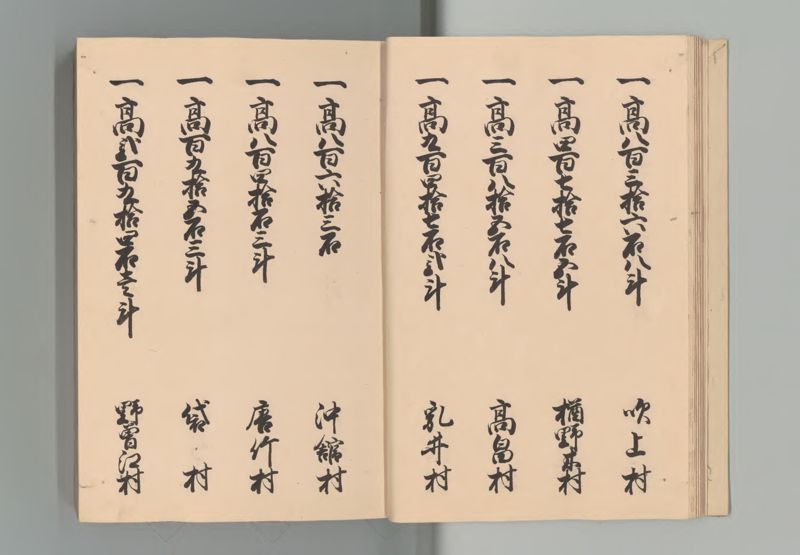 一高八百三拾六石八斗 吹上村
一高四百七拾七石五斗 楢野木村
一高三百八拾五石八斗 高畠村
一高九百四拾七石弐斗 乳井村
一高八百六拾三石 沖舘村
一高八百四拾石三斗 唐竹村
一高百九拾五石三斗 袋村
一高弐百九拾四石壱斗 野曽江村